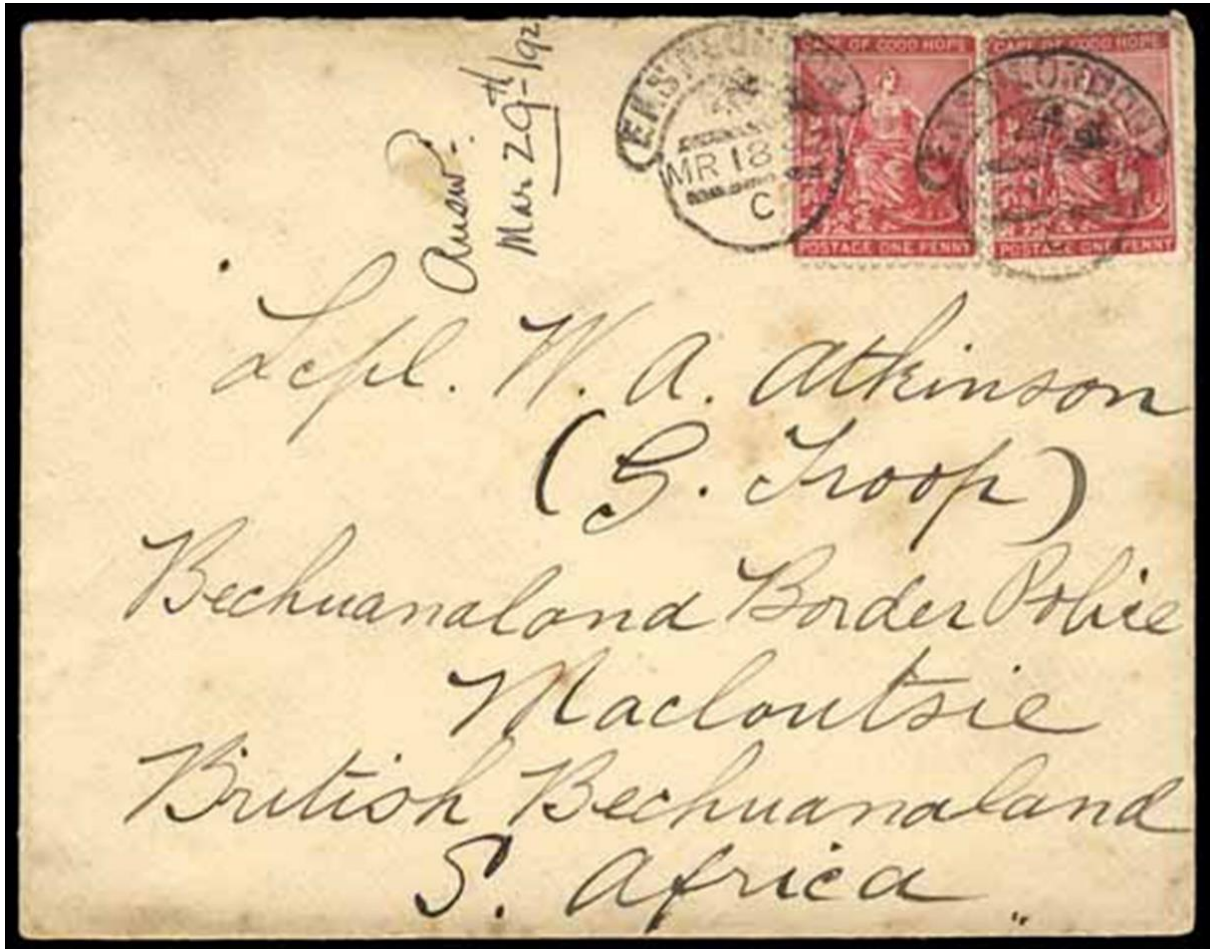 Answ.
Mar 29th /92
EAST LONDON
MR 18
C
CAPE OF GOOD HOPE
POSTAGE ONE PENNY
CAPE OF GOOD HOPE
POSTAGE ONE PENNY
EAST LONDON
Lcpl. W. A. Atkinson
(G. Troop)
Bechuanaland Border Police
Macloutsie
British Bechuanaland
S. Africa